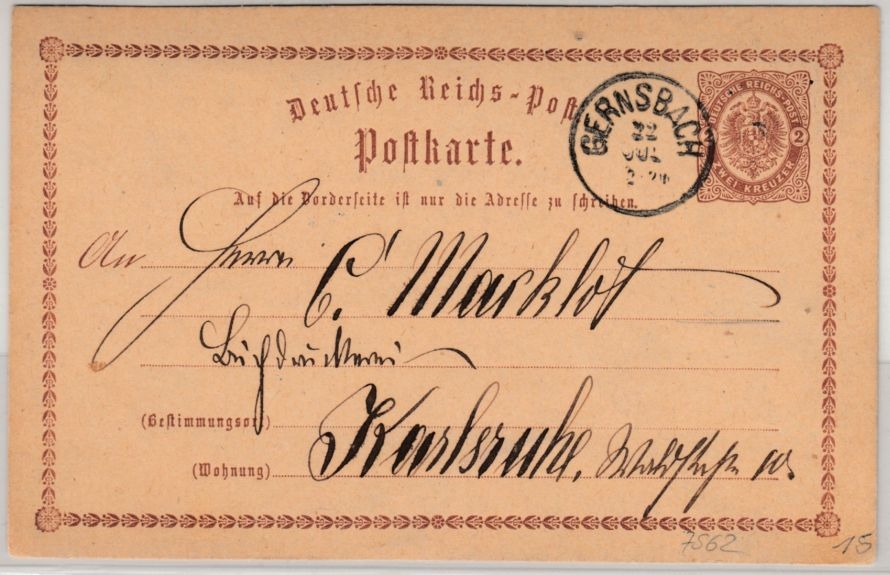 Deutsche Reichs-Post
Postkarte.
Auf die Vorderseite ist nur die Adresse zu schreiben.
GERNSBACH
22
JUL
DEUTSCHE REICHS-POST
2
ZWEI KREUZER
An Herrn
C. Macklot
Buchdruckerei
(Bestimmungsort)
Karlsruhe,
(Wohnung)
7562
15